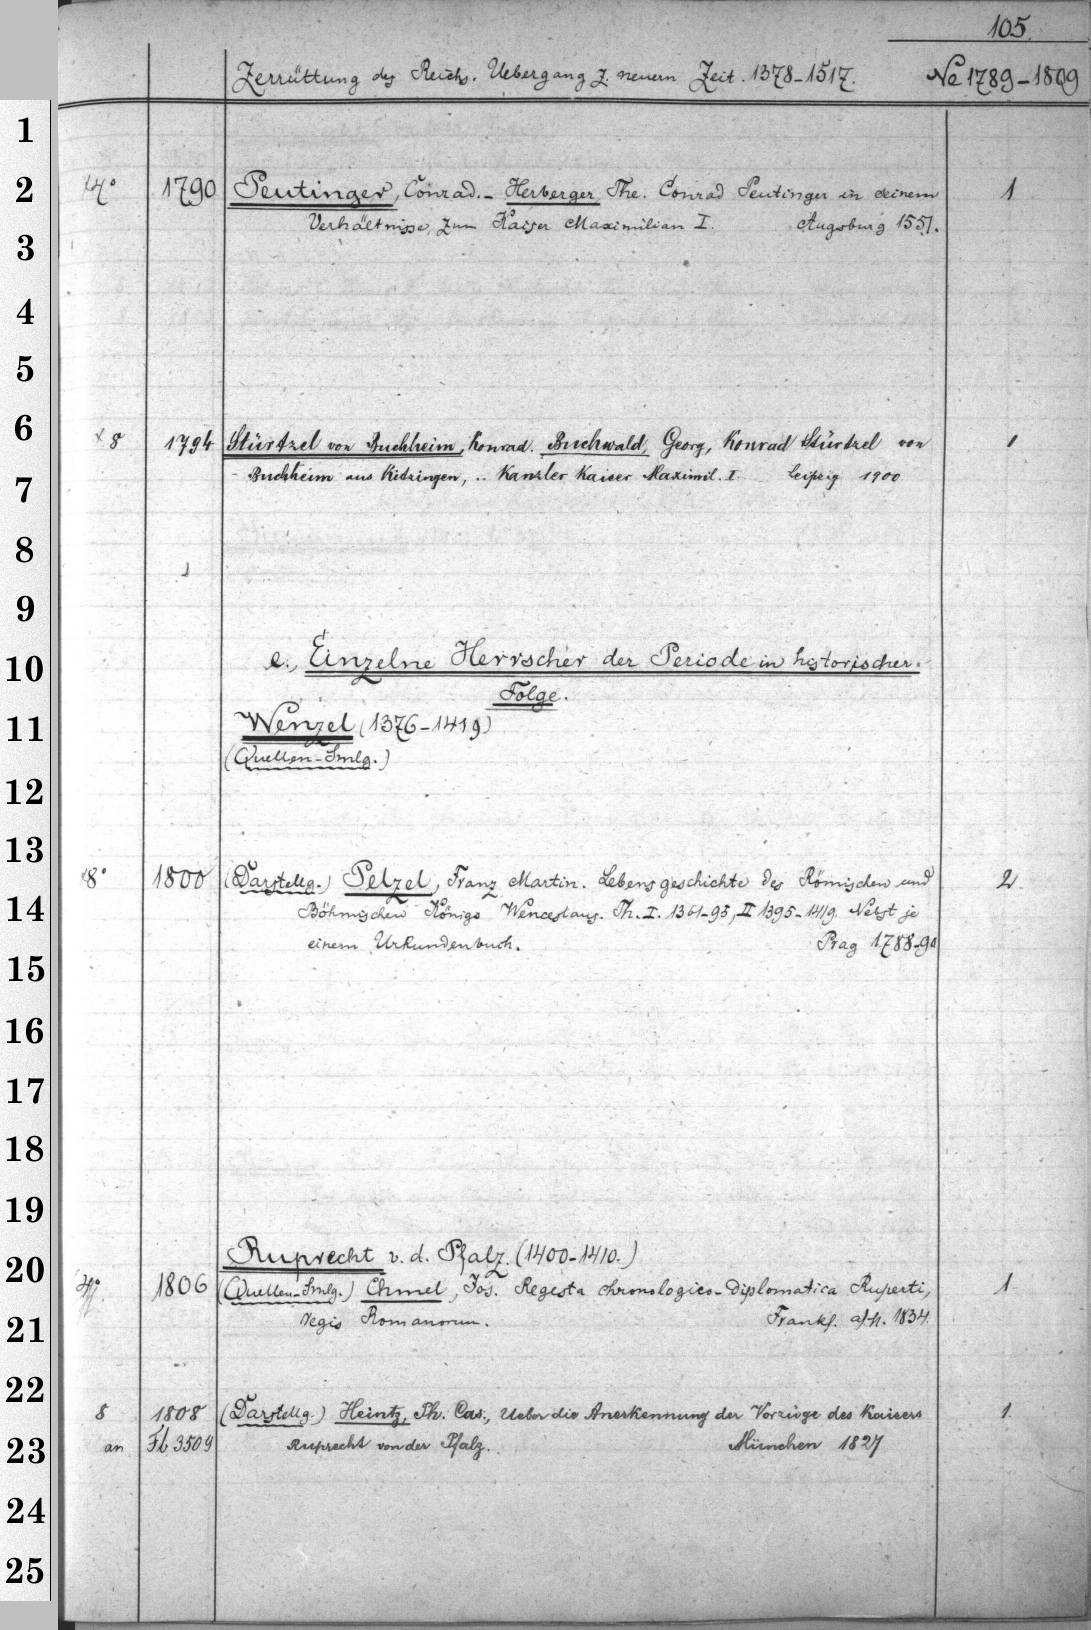 105.
Zerrüttung des Reichs. Uebergang z. neuern Zeit. 1378-1517. No 1789-1809
1
2 4° 1790 Peutinger, Conrad. - Herberger, The. Conrad Peutinger in seinem 1
Verhältnisse zum Kaiser Maximilian I. Augsburg 1551.
3
4
5
6 8 1794 Stürtzel von Buchheim, Konrad. Buchwald, Georg, Konrad Stürtzel von 1
7 Buchheim aus Kitzingen, .. Kanzler Kaiser Maximil. I. Leipzig 1900
8
9
10 e., Einzelne Herrscher der Periode in historischer
Folge.
11 Wenzel (1376-1419)
(Quellen-Smlg.)
12
13
8° 1800 (Darstellg.) Pelzel, Franz Martin. Lebensgeschichte des Römischen und 2
14 Böhmischen Königs Wenceslaus. Th. I. 1361-95, II 1395-1419. Nebst je
einem Urkundenbuch. Prag 1788-90
15
16
17
18
19
Ruprecht v. d. Pfalz. (1400-1410.)
20 4° 1806 (Quellen-Smlg.) Chmel, Jos. Regesta chronologico-diplomatica Ruperti, 1
21 regis Romanorum. Frankf. a/M. 1834.
22
8 1808 (Darstellg.) Heintz, Ph. Cas., Ueber die Anerkennung der Vorzüge des Kaisers 1.
23 an Fb 3509 Ruprecht von der Pfalz. München 1827
24
25